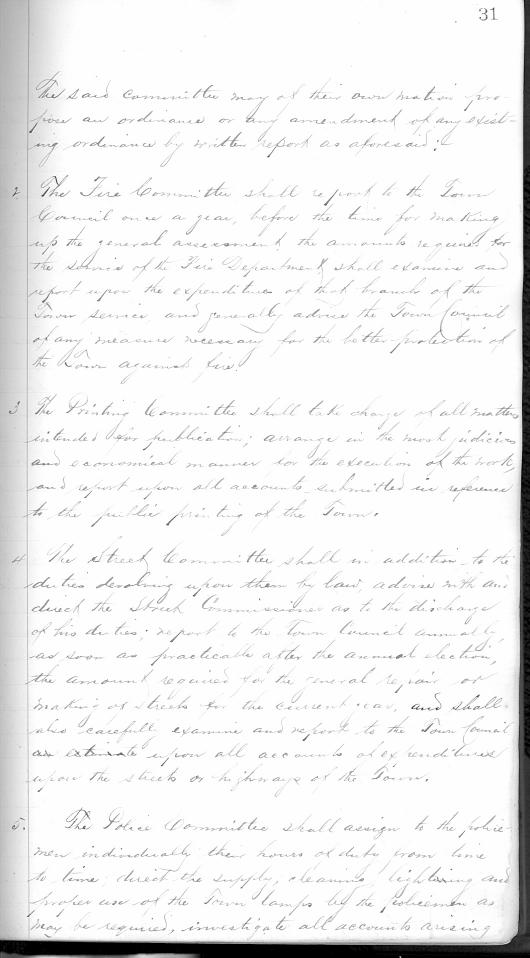 31
The said committee may of their own motion pro-
pose an ordinance or any amendment of any exist-
ing ordinance by written report as aforesaid:
2. The Fire Committee shall report to the Town
Council once a year, before the time for making
up the general assessment, the amounts required for
the service of the Fire Department, shall examine and
report upon the expenditures of that branch of the
Town service and generally advise the Town Council
of any measure necessary for the better protection of
the Town against fire.
3 The Printing Committee shall take charge of all matters
intended for publication; arrange in the most judicious
and economical manner for the execution of the work,
and report upon all accounts submitted in reference
to the public printing of the Town.
4 The Street Committee shall in addition to the
duties devolving upon them by law, advise with and
direct the Street Commissioner as to the discharge
of his duties; report to the Town Council annually,
as soon as practicable after the annual election,
the amount required for the general repair or
making of streets for the current year, and shall
also carefully examine and report to the Town Council
upon all accounts of expenditures
upon the streets or highways of the Town.
5. The Police Committee shall assign to the police-
men individually their hours of duty from time
to time; direct the supply, cleaning, lighting and
proper use of the Town lamps by the policemen as
may be required, investigate all accounts arising